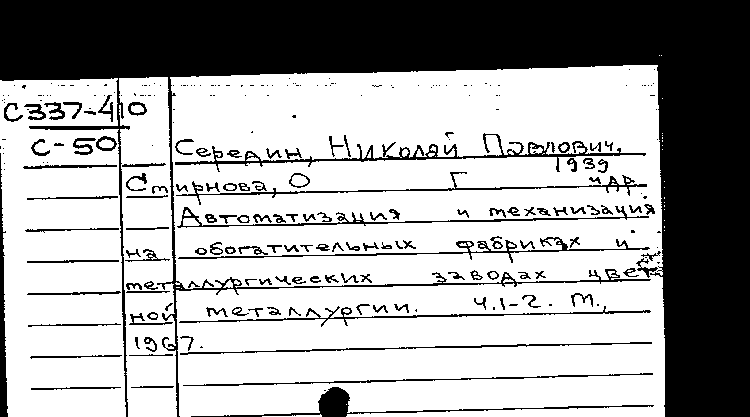 С337-410
С-50
Середин, Николай Павлович,
1939
Смирнова, О Г идр
Автоматизация и механизация
на обогатительных фабриках и
металлургических заводах цвет
ной металлургии. Ч.1-2. М.,
1967.